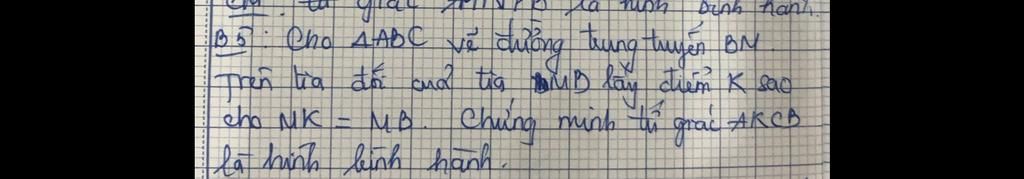 tứ giác là hình bình hành.
B5: Cho ΔABC vẽ đường trung tuyến BM.
Trên tia đối của tia MB lấy điểm K sao
cho MK = MB. Chứng minh tứ giác AKCB
là hình bình hành.